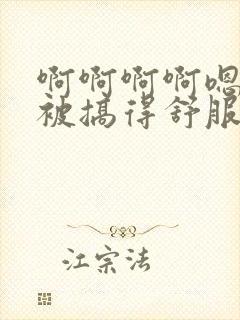 啊啊啊啊嗯
被搞得舒服
江宗法